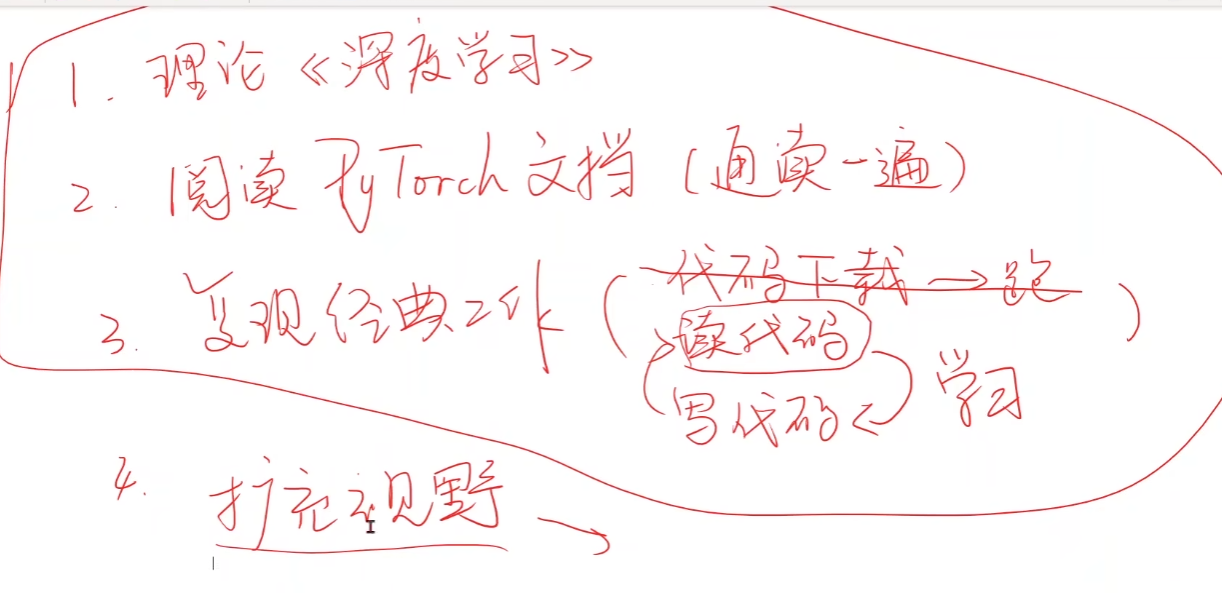 1. 理论《深度学习》
2. 阅读 PyTorch 文档 (通读一遍)
3. 复现经典工作 (代码下载 → 跑
读代码
写代码 学习)
4. 扩充视野 →